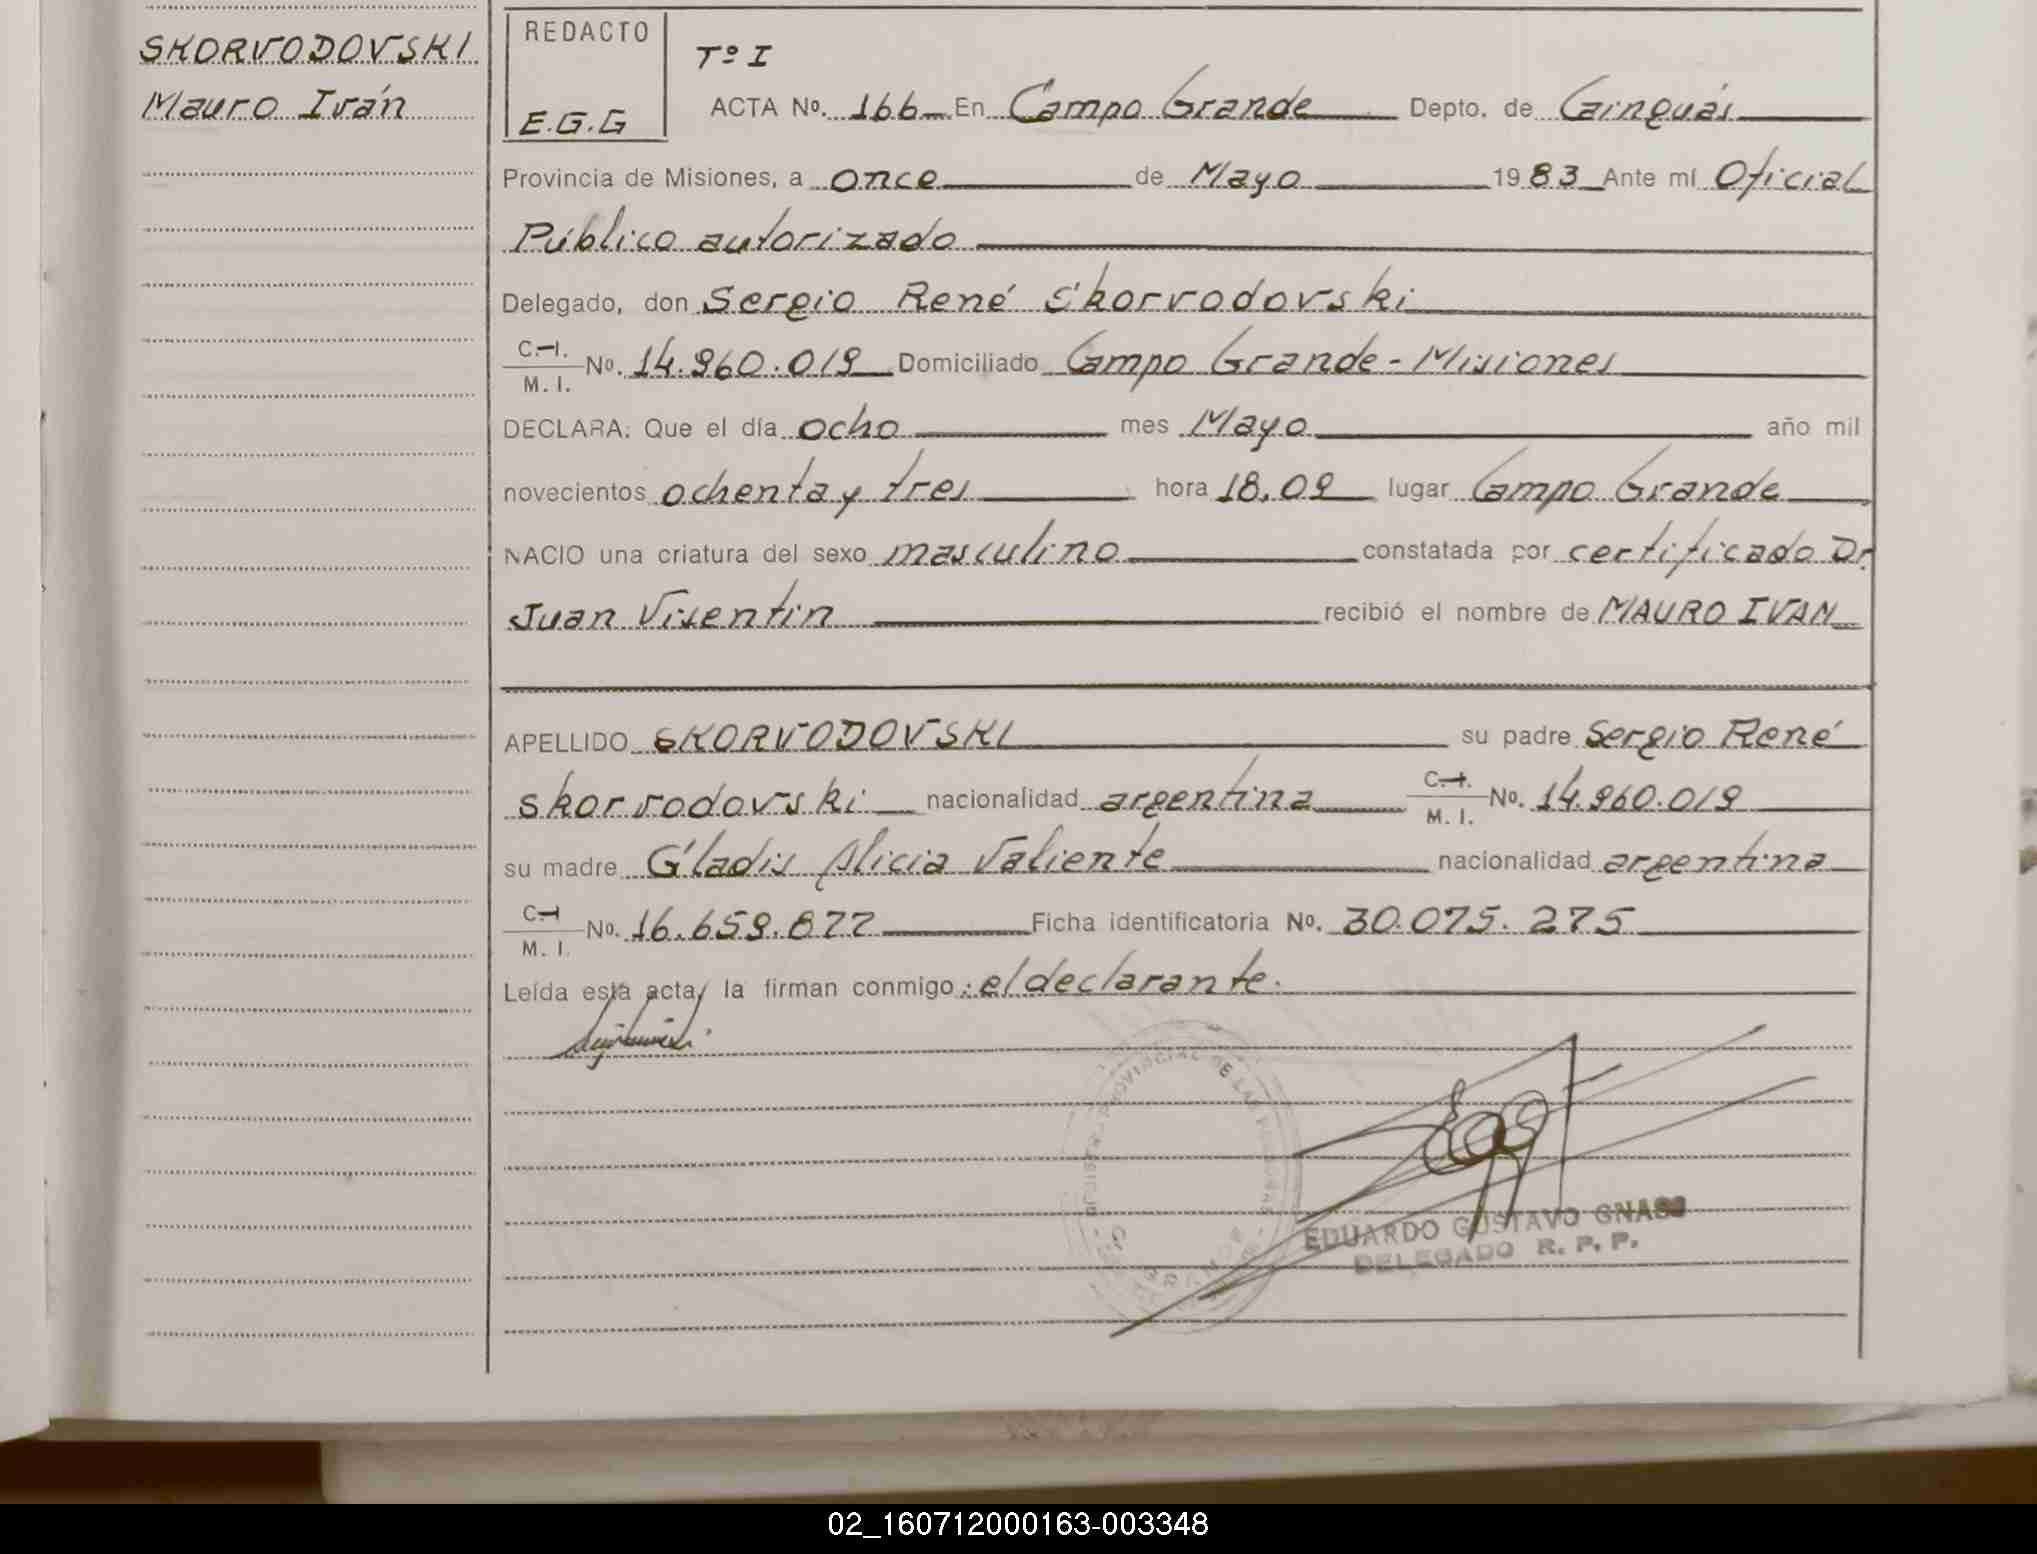 SKORVODOVSKI
Mauro Iván
REDACTO
E.G.G
Tº I
ACTA Nº. 166 En Campo Grande Depto. de Cainguás
Provincia de Misiones, a once de Mayo 1983 Ante mí Oficial
Público autorizado
Delegado, don Sergio René Skorvodovski
C.I. M. I. Nº. 14.960.019 Domiciliado Campo Grande - Misiones
DECLARA: Que el día ocho mes Mayo año mil
novecientos ochenta y tres hora 18,09 lugar Campo Grande
NACIO una criatura del sexo masculino constatada por certificado Dr.
Juan Visentin recibió el nombre de MAURO IVAN
APELLIDO SKORVODOVSKI su padre Sergio René
Skorvodovski nacionalidad argentina C.I. M. I. Nº. 14.960.019
su madre Gladis Alicia Valiente nacionalidad argentina
C.I M. I. Nº. 16.659.877 Ficha identificatoria Nº. 30.075.275
Leída esta acta, la firman conmigo: el declarante.
PROVINCIAL DE LAS
EDUARDO GUSTAVO
DELEGADO R. P. P.
02_160712000163-003348